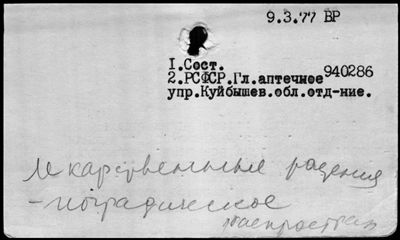 9.3.77 ВР
I.Сост.
2.РСФСР.Гл.аптечное 940286
упр.Куйбышев.обл.отд-ние.
лекарственные растения
распростран